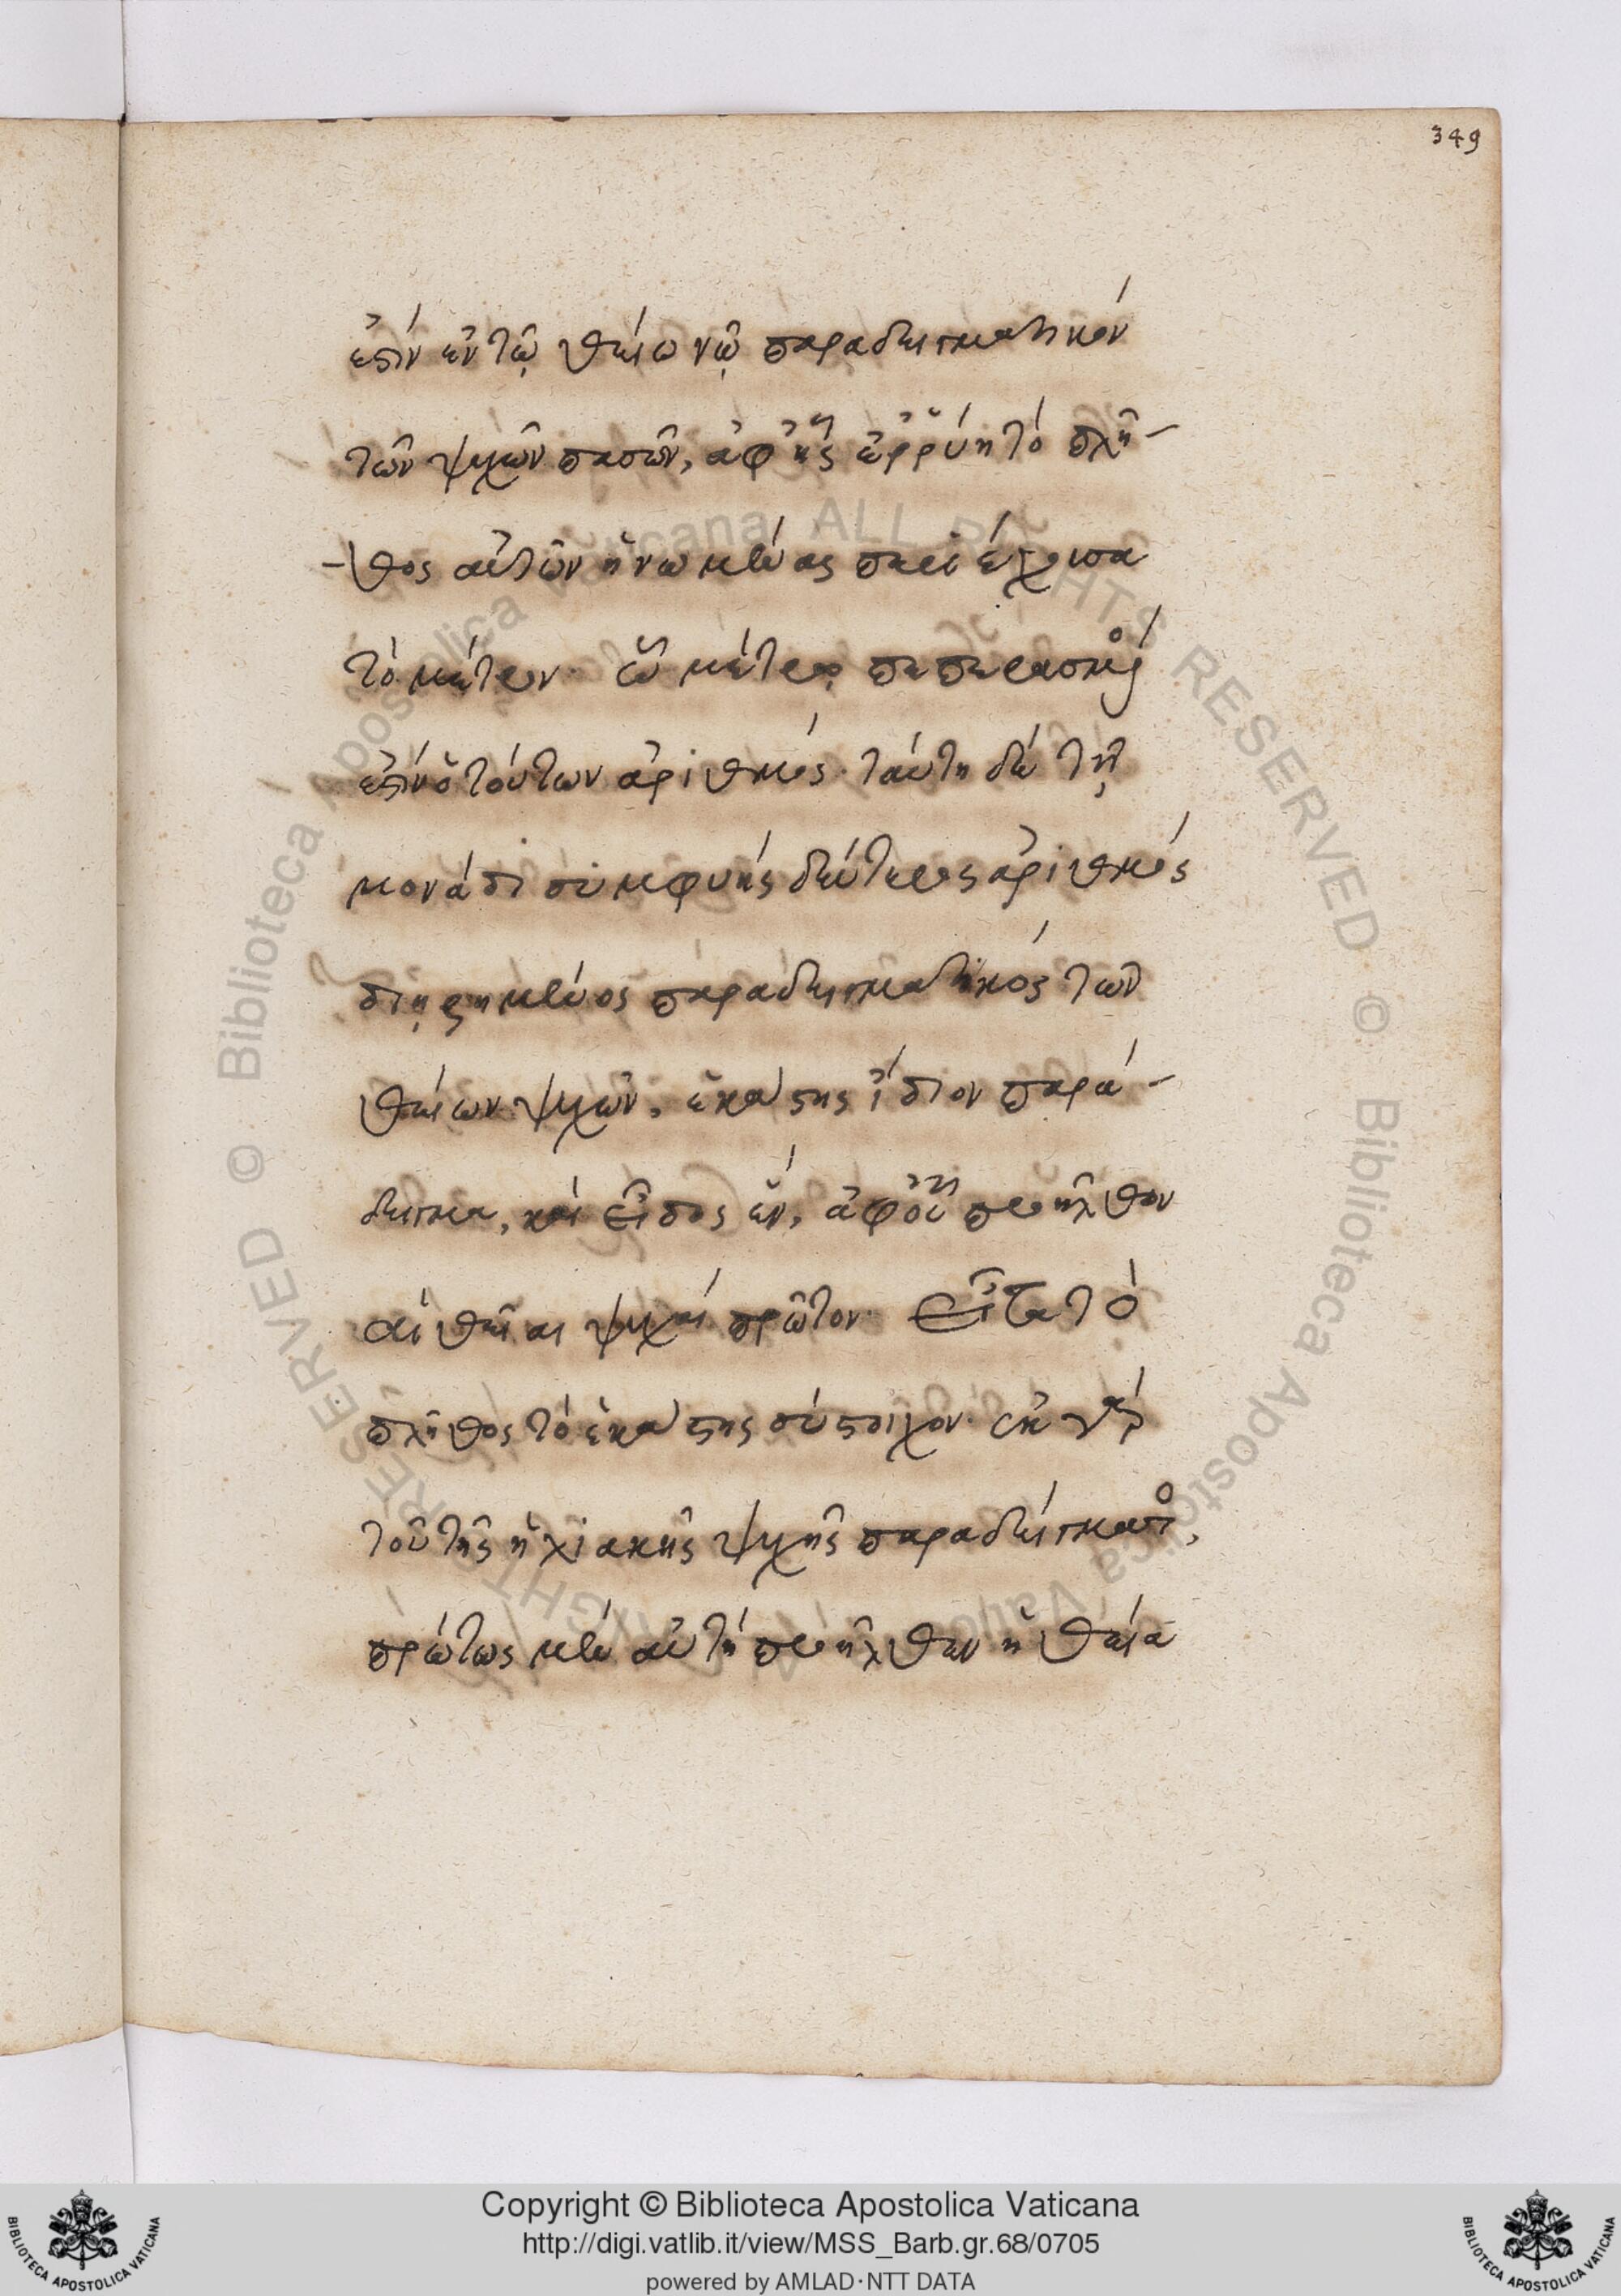 349
ἐστὶν ἐν τῷ θείω νῷ παραδειγματικὸν
τῶν ψυχῶν πασῶν, ἀφ' ἧς ἐῤῥύη τὸ πλῆ-
-θος αὐτῶν ἡνωμένως περιέχουσα
τὸ μέτρον· ᾧ μέτρῳ πεπερασμένος
ἐστὶν ὁ τούτων ἀριθμός· ταύτη δὲ τῇ
μονάδι συμφυὴς δεύτερος ἀριθμὸς
διῃρημένος παραδειγματικὸς τῶν
θείων ψυχῶν, ἑκάστης ἴδιον παρά-
δειγμα, καὶ εἶδος ἓν, ἀφ' οὗ προῆλθον
αἱ θεῖαι ψυχαὶ πρῶτον· Εἶτα τὸ
πλῆθος τὸ ἑκάστης σύστοιχον· ἐκ γὰρ
τοῦ τῆς ἡλιακῆς ψυχῆς παραδείγματος,
πρώτως μὲν αὐτὴ προῆλθεν ἡ θεία
Copyright © Biblioteca Apostolica Vaticana
http://digi.vatlib.it/view/MSS_Barb.gr.68/0705
powered by AMLAD·NTT DATA